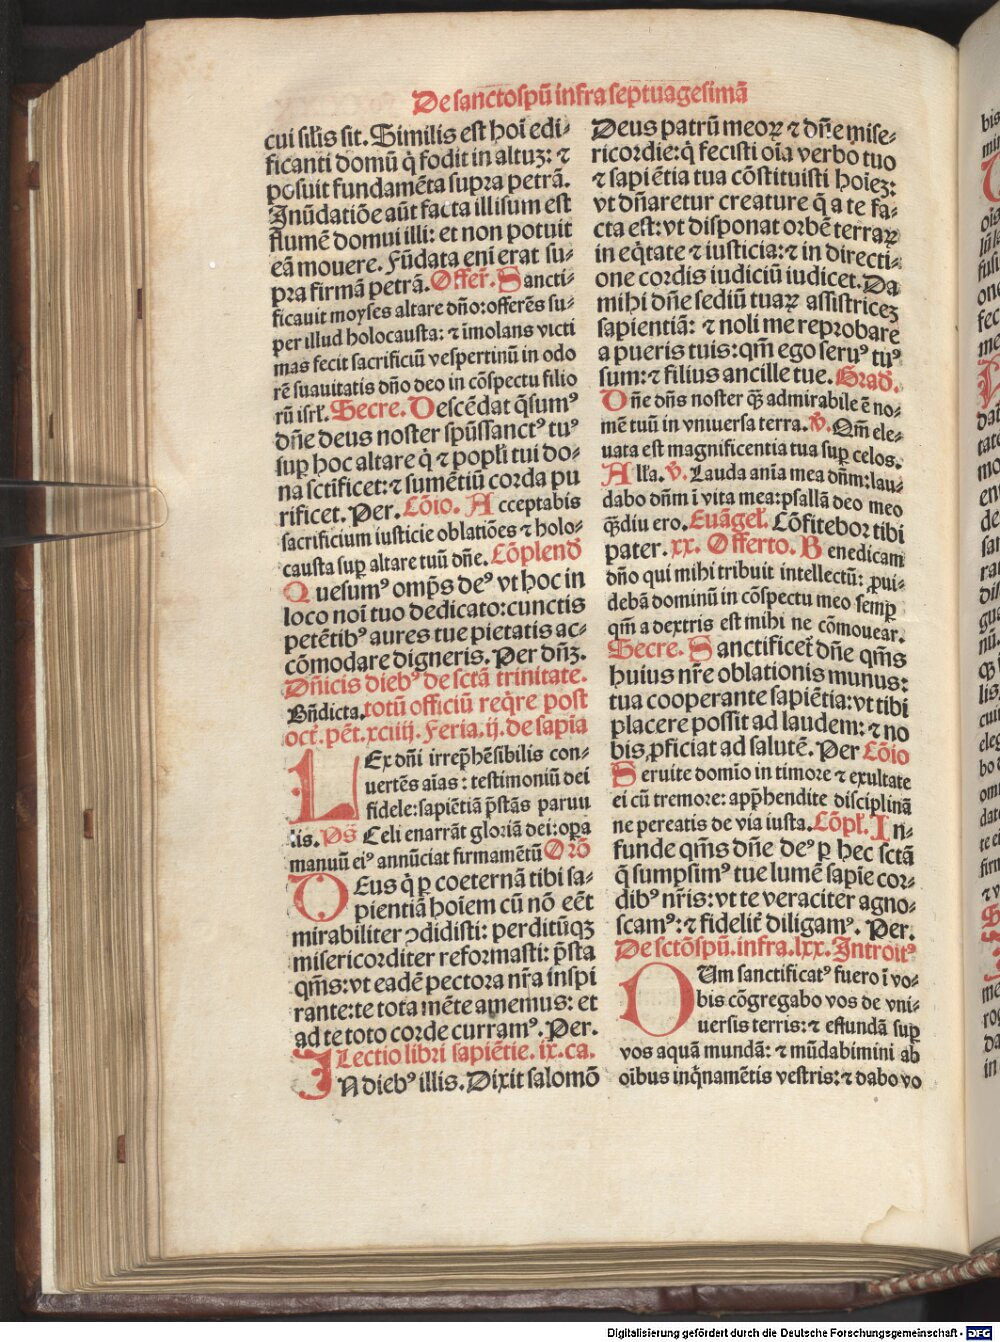 De sanctospũ infra septuagesimã
cui silis sit. Similis est hoĩ edi⸗
ficanti domũ q̇ fodit in altuʒ: ⁊
posuit fundamẽta supra petrã.
Inũdatiõe aũt facta illisum est
flumẽ domui illi: et non potuit
eã mouere. Fũdata eni erat su⸗
pra firmã petrã. Offer̃. Sancti⸗
ficauit moyses altare dño: offerẽs su⸗
per illud holocausta: ⁊ ĩmolans victi
mas fecit sacrificiũ vespertinũ in odo
rẽ suauitatis dño deo in cõspectu filio
rũ isrł. Secre. Descẽdat q̃sumꝰ
dñe deus noster spũssanctꝰ tuꝰ
suꝑ hoc altare q̇ ⁊ popľi tui do⸗
na sctificet: ⁊ sumẽtiũ corda pu
rificet. Per. Cõio. Acceptabis
sacrificium iusticie oblatiões ⁊ holo⸗
causta suꝑ altare tuũ dñe. Cõplend̃
Quesumꝰ omp̃s deꝰ vt hoc in
loco noĩ tuo dedicato: cunctis
petẽtibꝰ aures tue pietatis ac⸗
cõmodare digneris. Per dñʒ.
Dñicis diebꝰ de sctã trinitate.
Bñdicta. totũ officiũ req̃re post
oct̃. pẽt. xciiij. Feria. ij. de sapia
LEx dñi irrep̃hẽsibilis con⸗
uertẽs aĩas: testimoniũ dei
fidele: sapiẽtiã p̃stãs paruu
lis. Ps̃ Celi enarrãt gloriã dei: opa
manuũ eiꝰ annũciat firmamẽtũ Orõ
DEus q̇ ꝑ coeternã tibi sa⸗
pientiã hoĩem cũ nõ eẽt
mirabiliter ꝯdidisti: perditũqʒ
misericorditer reformasti: p̃sta
qm̃s: vt eadẽ pectora nr̃a inspi
rante: te tota mẽte amemus: et
ad te toto corde curramꝰ. Per.
Lectio libri sapiẽtie. ix. ca.
IN diebꝰ illis. Dixit salomõ
Deus patrũ meoꝝ ⁊ dñe mise⸗
ricordie: q̇ fecisti oĩa verbo tuo
⁊ sapiẽtia tua cõstituisti hoĩeʒ:
vt dñaretur creature q̃ a te fa⸗
cta est: vt disponat orbẽ terraꝝ
in eq̇tate ⁊ iusticia: ⁊ in directi⸗
one cordis iudiciũ iudicet. Da
mihi dñe sediũ tuaꝝ assistriceʒ
sapientiã: ⁊ noli me reprobare
a pueris tuis: qm̃ ego seruꝰ tuꝰ
sum: ⁊ filius ancille tue. Grad̃.
Dñe dñs noster q̃ʒ admirabile ẽ no⸗
mẽ tuũ in vniuersa terra. ℣. Qm̃ ele⸗
uata est magnificentia tua suꝑ celos.
Alľa. ℣. Lauda anĩa mea dñm: lau⸗
dabo dñm ĩ vita mea: psallã deo meo
q̃ʒdiu ero. Euãgeł. Cõfitebor tibi
pater. xx. Offerto. Benedicam
dño qui mihi tribuit intellectũ: ꝓui⸗
debã dominũ in cõspectu meo semꝑ
qm̃ a dextris est mihi ne cõmouear.
Secre. Sanctificet̃ dñe qm̃s
huius nr̃e oblationis munus:
tua cooperante sapiẽtia: vt tibi
placere possit ad laudem: ⁊ no
bis ꝓficiat ad salutẽ. Per Cõio
Seruite domĩo in timore ⁊ exultate
ei cũ tremore: app̃hendite disciplinã
ne pereatis de via iusta. Cõpľ. In⸗
funde qm̃s dñe deꝰ ꝑ hec sctã
q̃ sumpsimꝰ tue lumẽ sapĩe cor⸗
dibꝰ nr̃is: vt te veraciter agno⸗
scamꝰ: ⁊ fidelit̃ diligamꝰ. Per.
De sctõspũ. infra. lxx. Introitꝰ
DUm sanctificatꝰ fuero ĩ vo⸗
bis cõgregabo vos de vni⸗
uersis terris: ⁊ effundã suꝑ
vos aquã mundã: ⁊ mũdabimini ab
oĩbus inq̇namẽtis vestris: ⁊ dabo vo
Digitalisierung gefördert durch die Deutsche Forschungsgemeinschaft - DFG